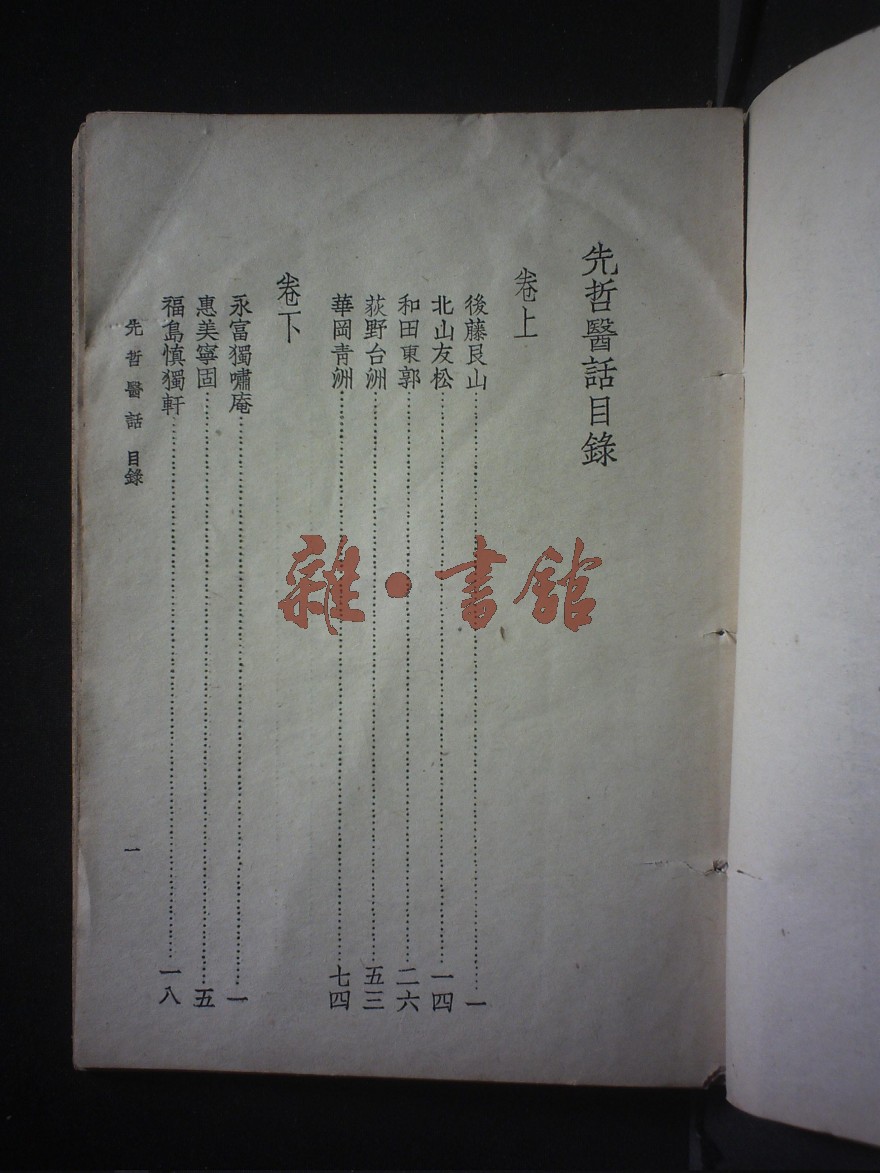 先哲醫話目錄
卷上
後藤艮山……一
北山友松……一四
和田東郭……二六
荻野台洲……五三
華岡青洲……七四
卷下
永富獨嘯庵……一
惠美寧固……五
福島慎獨軒……一八
先哲醫話 目錄 一
雜·書館